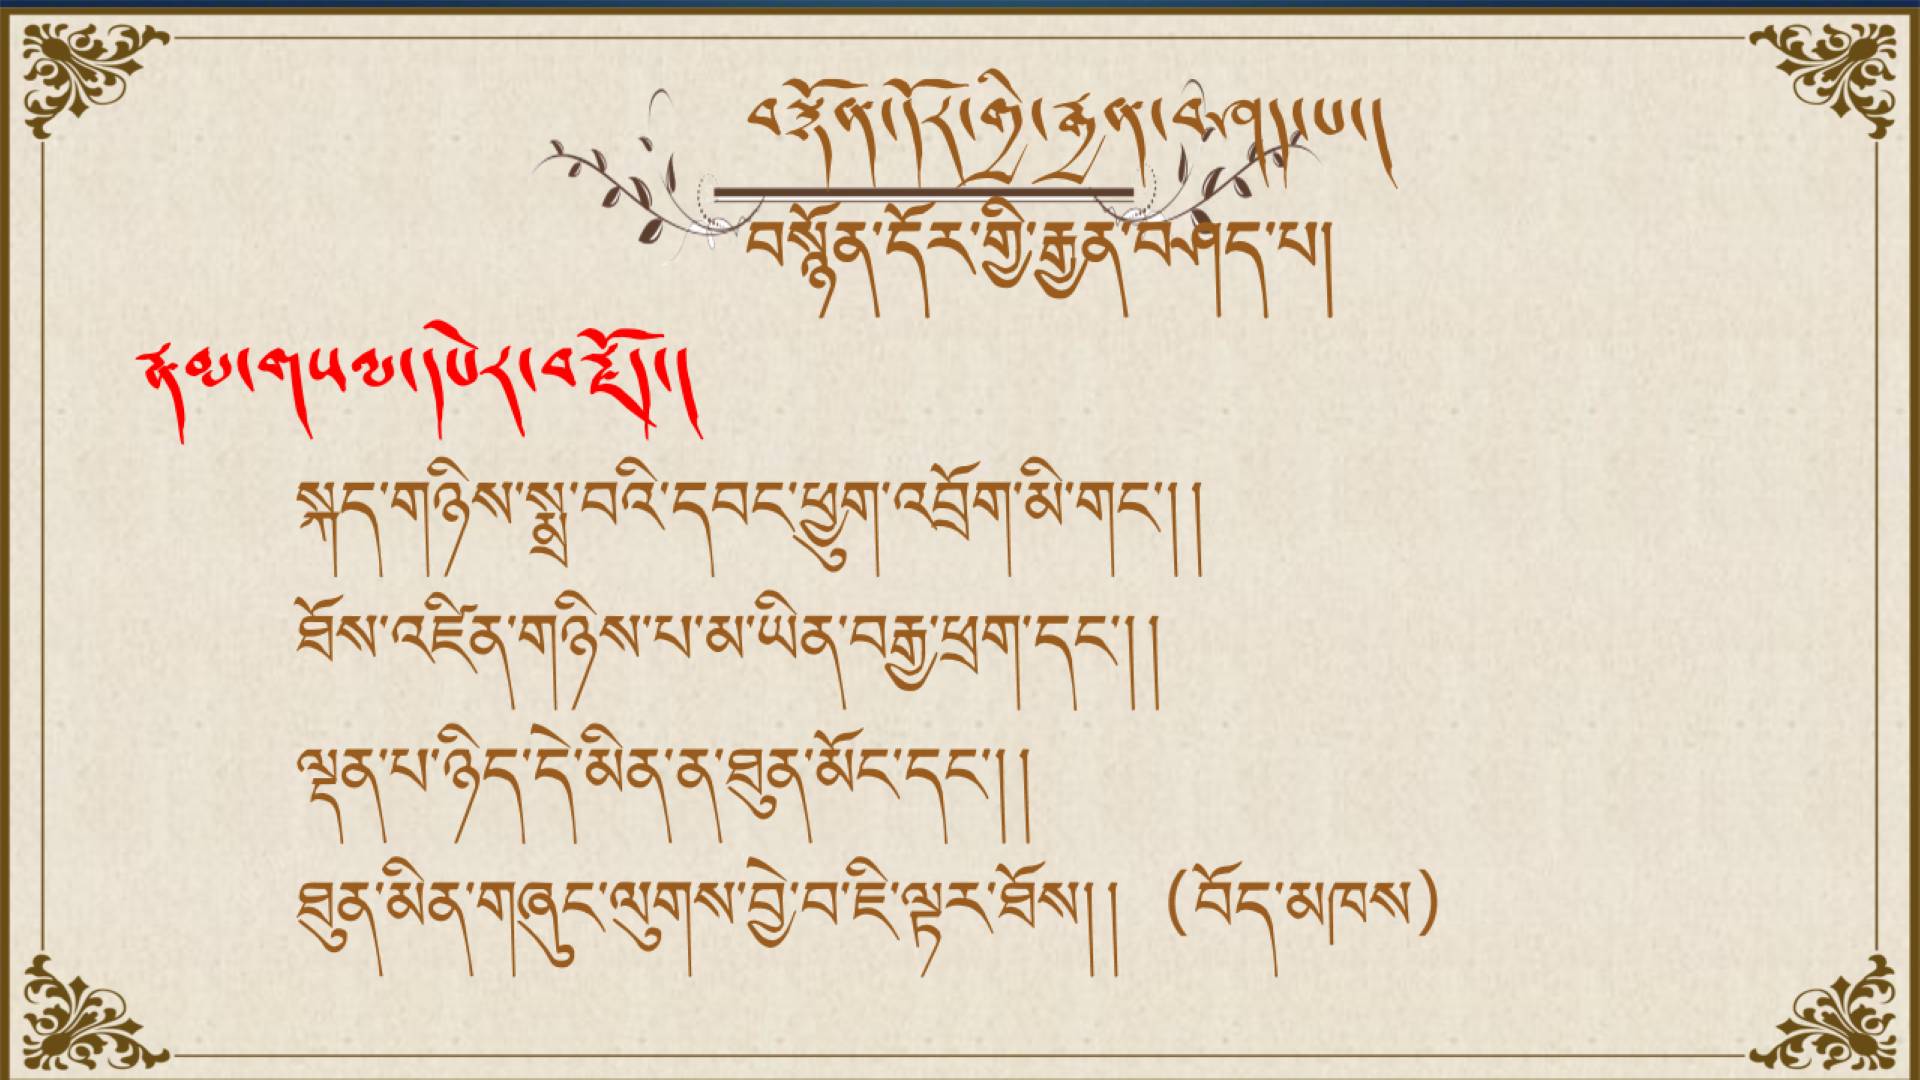 བསྙོན་དོར་གྱི་རྒྱན་བཤད་པ།
བསྙོན་དོར་གྱི་རྒྱན་བཤད་པ།
སྐད་གཉིས་སྨྲ་བའི་དབང་ཕྱུག་འབྲོག་མི་གང་།།
ཐོས་འཛིན་གཉིས་པ་མ་ཡིན་བརྒྱ་ཕྲག་དང་།།
ལྡན་པ་ཉིད་དེ་མིན་ན་ཐུན་མོང་དང་།།
ཐུན་མིན་གཞུང་ལུགས་བྱེ་བ་ཇི་ལྟར་ཐོས།། (བོད་མཁས)